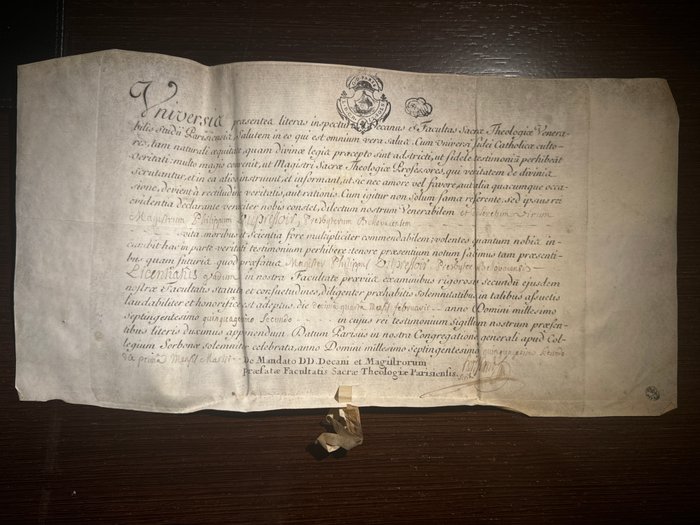 Universis praesentes literas inspecturis Decanus & Facultas Sacrae Theologiae Venera-
bilis Studii Parisiensis, Salutem in eo qui est omnium vera salus. Cum Universi fidei Catholicae culto-
res, tam naturali aequitate quam divinae legis praecepto sint adstricti, ut fidele testimoniū perhibeāt
veritati: multo magis convenit, ut Magistri Sacrae Theologiae Professores, qui veritatem de divinis
scrutantur, et in ea alios instruunt, et informant, ut sic nec amore vel favore, aut alia quacumque occa-
sione, devient à rectitudine veritatis, aut rationis. Cum igitur non solum fama referente, sed ipsius rei
evidentia declarante veraciter nobis constet, dilectum nostrum Venerabilem et
Magistrum Philippum Presbyterum
vita moribus et scientia fore multipliciter commendabilem volentes quantum nobis in-
cumbit hac in parte veritati testimonium perhibere tenore praesentium notum facimus tam praesenti-
bus quam futuris quod praefatus Magister Philippus Presbyter
Licentiatus gradum in nostra Facultate praeviis examinibus rigorosis secundū ejusdem
nostrae Facultatis statuta et consuetudines, diligenter prae habitis solemnitatibus in talibus assuetis
laudabiliter et honorifice est adeptus die mensis februarii anno Domini millesimo
septingentesimo quinquagesimo secundo in cujus rei testimonium Sigillum nostrum praesen-
tibus literis duximus appendendum Datum Parisiis in nostra Congregatione generali apud Col-
legium Sorbonae solemniter celebrata, anno Domini millesimo septingentesimo quinquagesimo secundo
die prima Mensis Martii
De Mandato DD. Decani et Magistrorum
praefatae Facultatis Sacrae Theologiae Parisiensis.